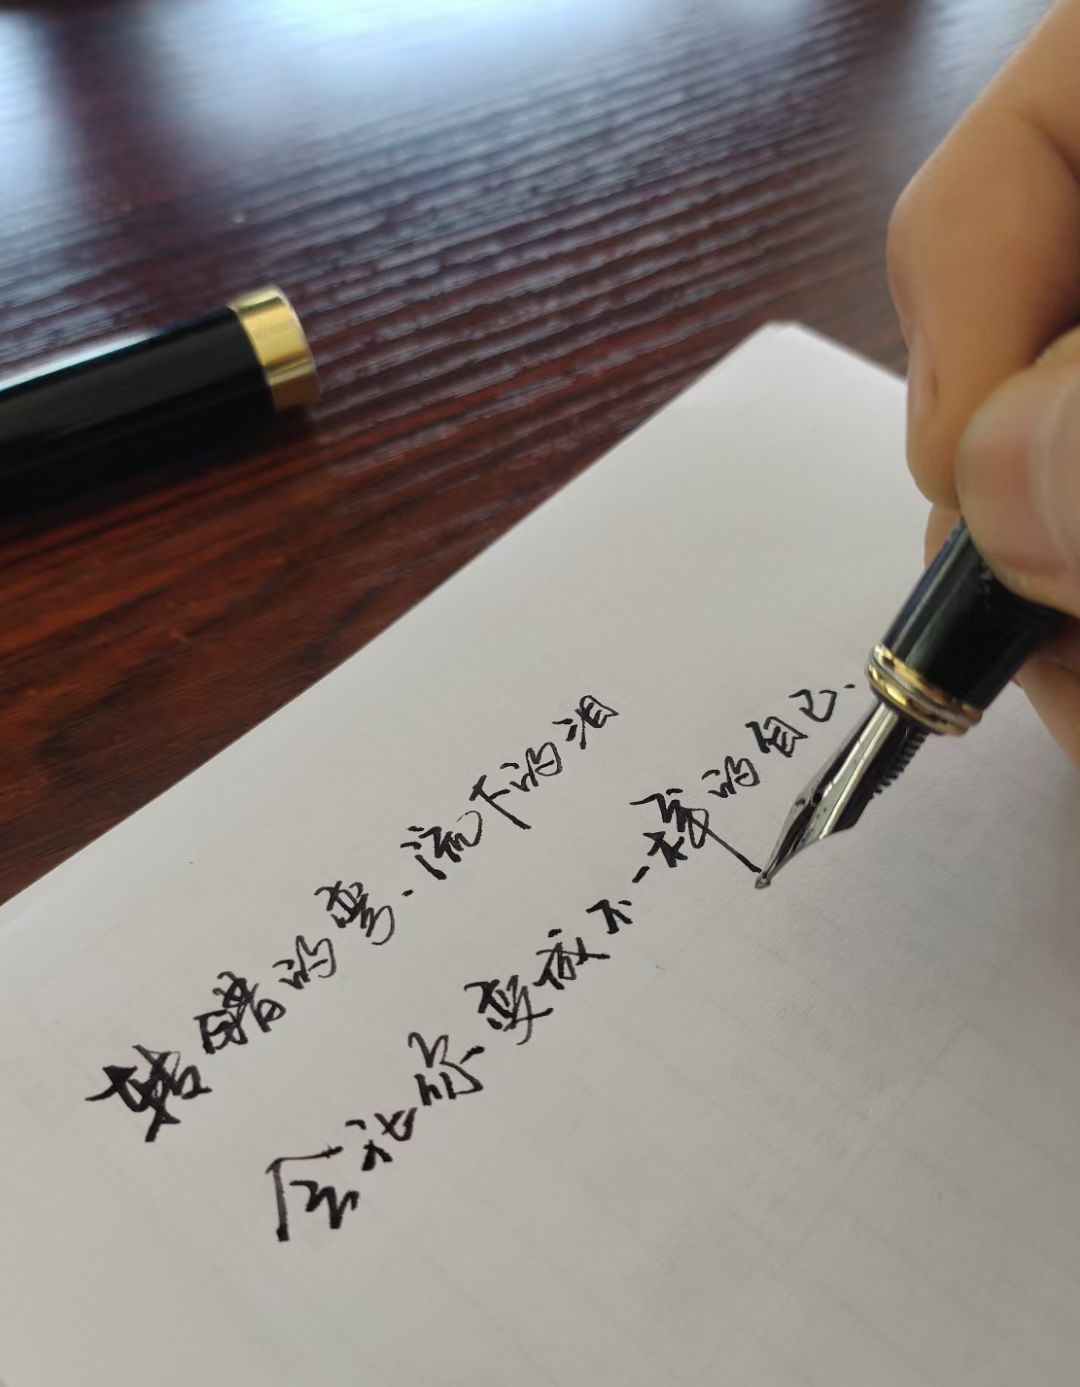 转错的弯.流下的泪
会让你变成不一样的自己.